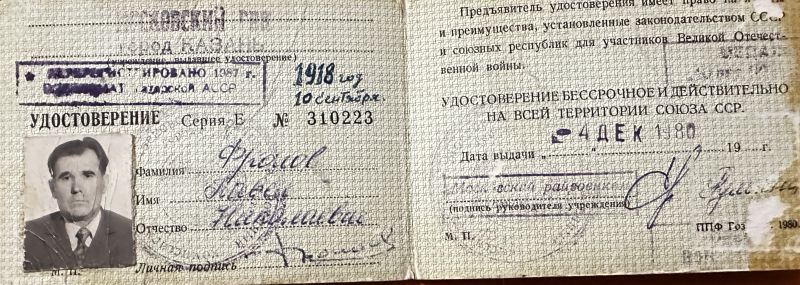 МОСКОВСКИЙ РВК
город КАЗАНЬ
(учреждение, выдавшее удостоверение)
ПЕРЕРЕГИСТРИРОВАНО 1987 г.
ТАТАРСКОЙ АССР
1918 год
10 сентября.
УДОСТОВЕРЕНИЕ Серия Б № 310223
Фамилия Фролов
Имя Павел
Отчество Николаевич
М. П. Личная подпись
Предъявитель удостоверения имеет право на
и преимущества, установленные законодательством СССР
и союзных республик для участников Великой Отечест-
венной войны.
УДОСТОВЕРЕНИЕ БЕССРОЧНОЕ И ДЕЙСТВИТЕЛЬНО
НА ВСЕЙ ТЕРРИТОРИИ СОЮЗА ССР.
- 4 ДЕК 1980
Дата выдачи „ “ 19 г.
Московский райвоенком
(подпись руководителя учреждения)
М. П.
ППФ Гоз 1980.